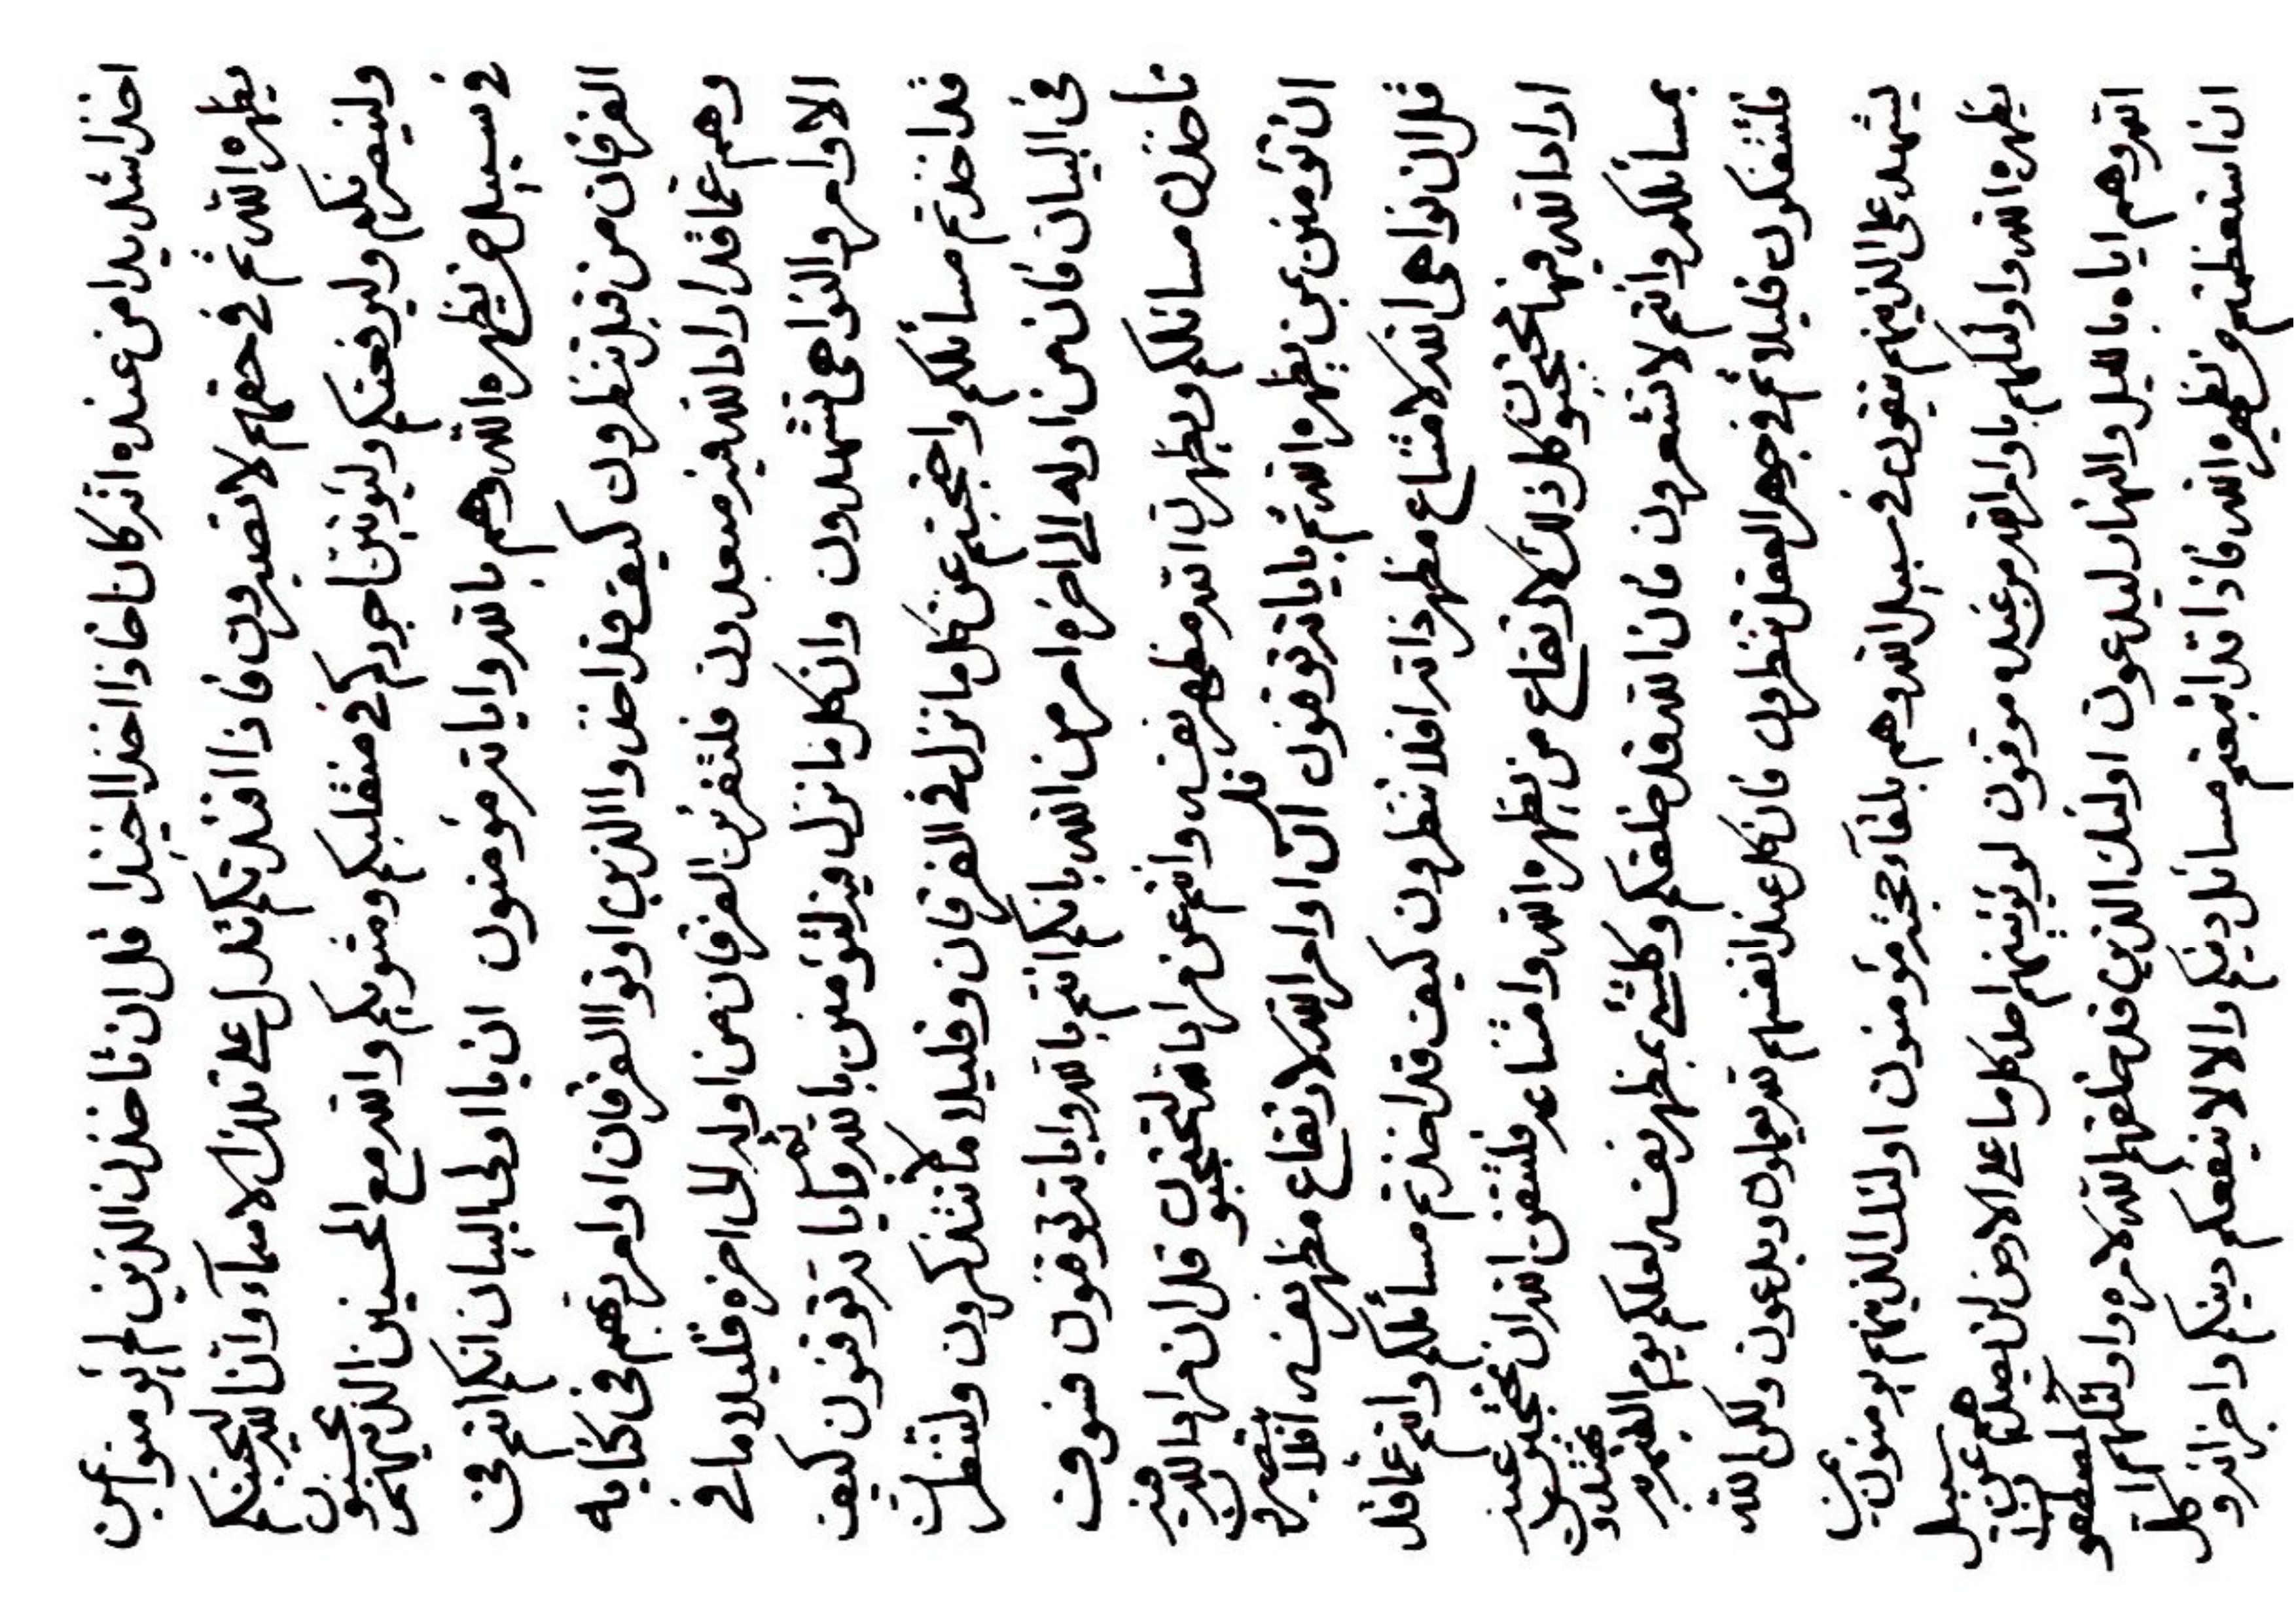 اخذا شديدا من عنده انه كان اخاذا اخذا اخيذا قل ان تاخذن الذين لم يؤمنوا بمن
يظهره الله ثم في حقهم لا تصبرون فاذا اقتدرتكم تدل على تلك الاسماء وان الله ليحبنكم
ولينصرنكم وليرفعنكم وليؤتين اجوركم في منقلبكم ومثويكم والله مع المحسنين الذينهم يحسنون
في سبيل من يظهره الله وهم بالله واياته مؤمنون ان يا اولى البيان انكم انتم في
الفرقان من قبل تنظرون كيف قد اخذوا الذين اوتوا الفرقان اوامر ربهم في كتابه
وهم عما قد اراد الله فيه مبعدون فلتقرئن الفرقان من اوله الى اخره قليلا ما في
الاوامر والنواهى تشهدون وان كل ما نزل فيه لتؤمنن بالله ثم باياته توقنون كيف
قد اخذتم مسائلكم واحتجبتم عن كل ما نزل في الفرقان وقليلا ما لا تتذكرون ولتنظرن
في البيان فان من اوله الى اخره امر من الله بانكم انتم بالله واياته توقنون فسوف
تاخذن مسائلكم ويظهرن الله مظهر نفسه وانتم عن مراد الله لتحتجبون قل ان مراد الله فيه
ان تؤمنن بمن يظهره الله ثم باياته توقنون قل ان اوامر الله لارتفاع مظهر نفسه افلا تبصرون
قل ان نواهى الله لامتناع مظهر ذاته افلا تنظرون كيف قد اخذتم مسائلكم وانتم عما قد
اراد الله فيها محتجبون كل ذلك لارتفاع من يظهره الله وامتناعه فلتتقن الله ان تحتجبون عنه
بمسائلكم وانتم لا تشعرون فان الله قد خلقكم وكلشئ بمظهر نفسه لعلكم يوم القيمة به تهتدون
فلتتفكرون قليلا ثم في جوهر العقل تنظرون فان كل عند انفسهم لله يعملون ويدعون ولكن الله
يشهد على الذينهم يتقون في سبيل الله وهم بلقاء حجته مؤمنون اولئك الذينهم يؤمنون بمن
يظهره الله واولئكهم باوامر الله من عنده موقنون لو يؤتينهم احد كل ما على الارض لن يصدهم عن سبيل
الله وهم اياه بالليل والنهار ليدعون اولئك الذين قد خلقهم الله لامره واولئكهم المصطفون
ان استعظمتم من يظهره الله فاذا قد مسائل دينكم والا لا ينفعكم دينكم